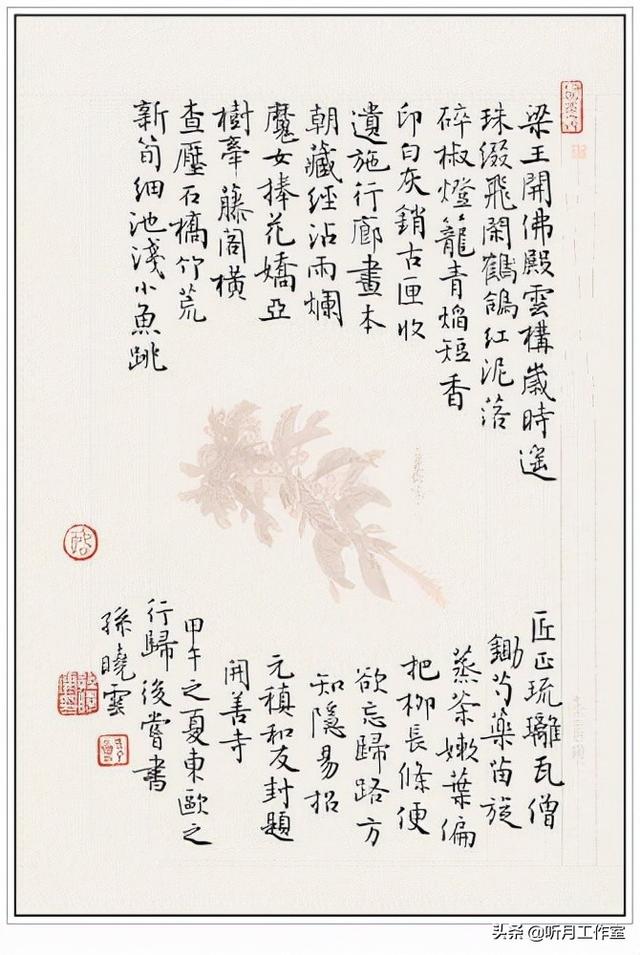 梁王開佛殿雲構歲時遙
珠缀飛閑鶴鴿紅泥落
碎椒燈籠青焰短香
印白灰銷古匣收
遺施行廊畫本
朝藏經沾雨爛
魔女捧花嬌亞
樹牽藤閣橫
查壓石橋竹荒
新筍細池淺小魚跳
匠正琉璃瓦僧
鋤芍藥苗旋
蒸茶嫩葉偏
把柳長條便
欲忘歸路方
知隱易招
元稹和友封題
開善寺
甲午之夏東歐之
行歸後嘗書
孫曉雲
头条 @听月工作室